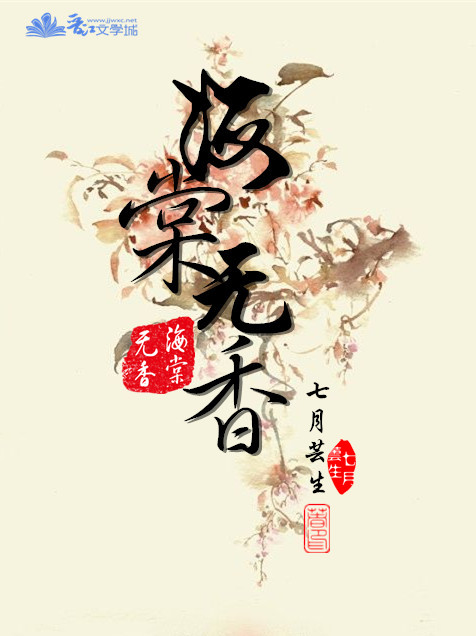 www.jjwxc.net
晋江文学城
海棠无香
海棠
无香
七月芸生
七月
芸生